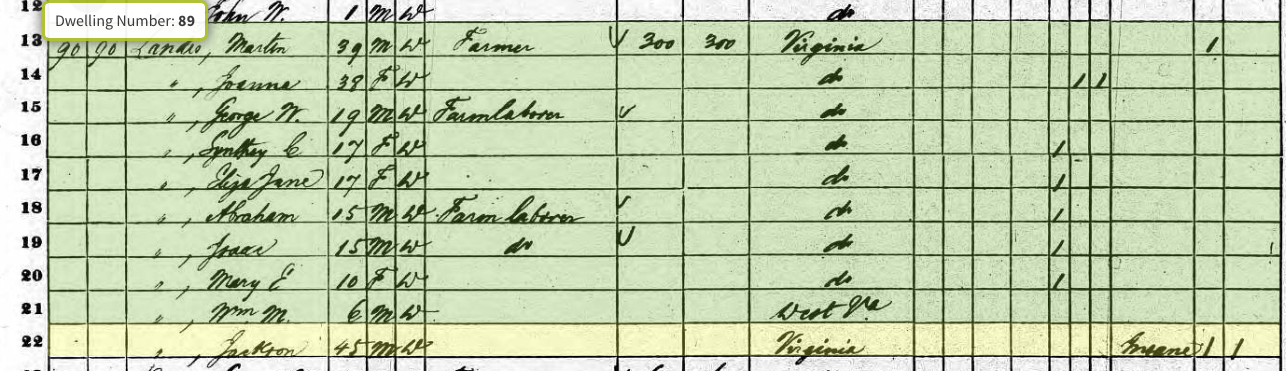 12 John W. 1 M W do
Dwelling Number: 89
13 90 90 Landis, Martin 39 M W Farmer 300 300 Virginia 1
14 " , Joanna 38 F W do 1 1
15 " , George W. 19 M W Farmlaborer do
16 " , Synthey C 17 F W do 1
17 " , Eliza Jane 17 F W do 1
18 " , Abraham 15 M W Farm laborer do 1
19 " , Isaac 15 M W do do 1
20 " , Mary E 10 F W do 1
21 " , Wm M. 6 M W West Va
22 " , Jackson 45 M W Virginia Insane 1 1